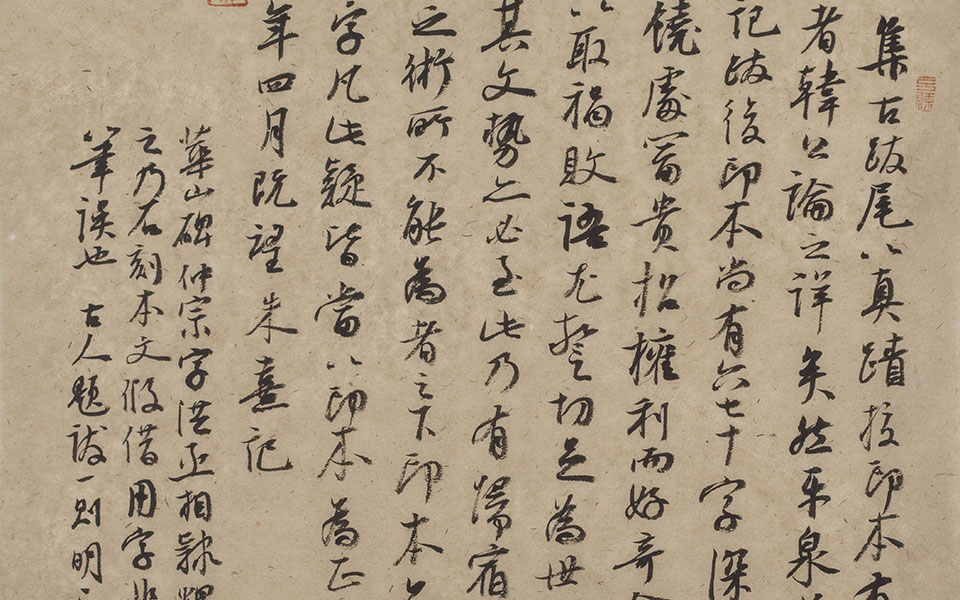 集古跋尾以真蹟挍印本有
者韓公論之詳矣然平泉
記跋後印本尚有六七十字深
饒處富貴招權利而好奇
以取禍敗語尤警切足為世
其文勢亦必至此乃有歸宿
之術所不能為者之下印本
字凡此疑皆當以印本為正
年四月既望朱熹記
華山碑仲宗字洪丞相隸釋
之乃石刻本文假借用字非
筆誤也 古人題跋一則明